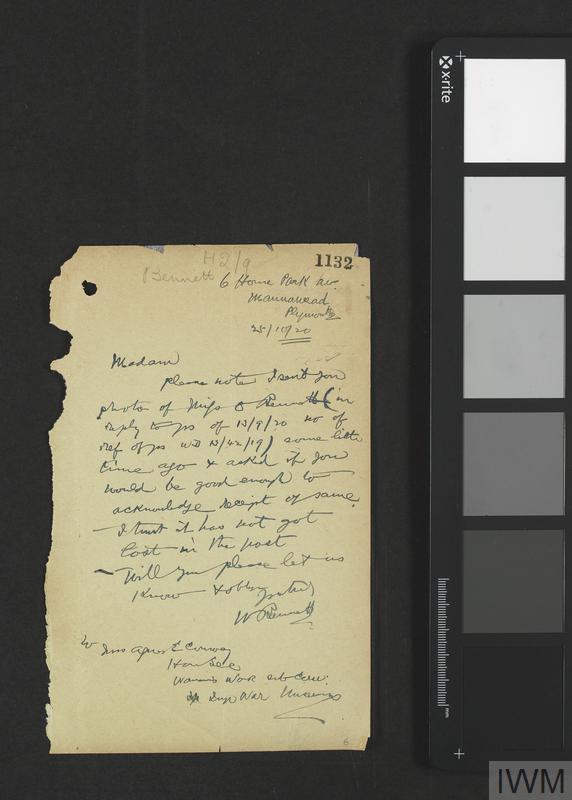 H2/9
Bennett
1132
6 Home Park Av.
Mannamead
Plymouth
25/10/20
Madam
please note I sent you
photo of Miss Bennett (in
reply to yrs of 13/9/20 no of
ref of yrs 13/42/19) some little
time ago & asked if you
would be good enough to
acknowledge receipt of same.
I trust it has not got
lost in the post
Will you please let us
know & oblige
W Bennett
To Miss Agnes E Conway
Hon Sec
Womens Work Sub Com.
War Museum
6
x·rite
mm
IWM